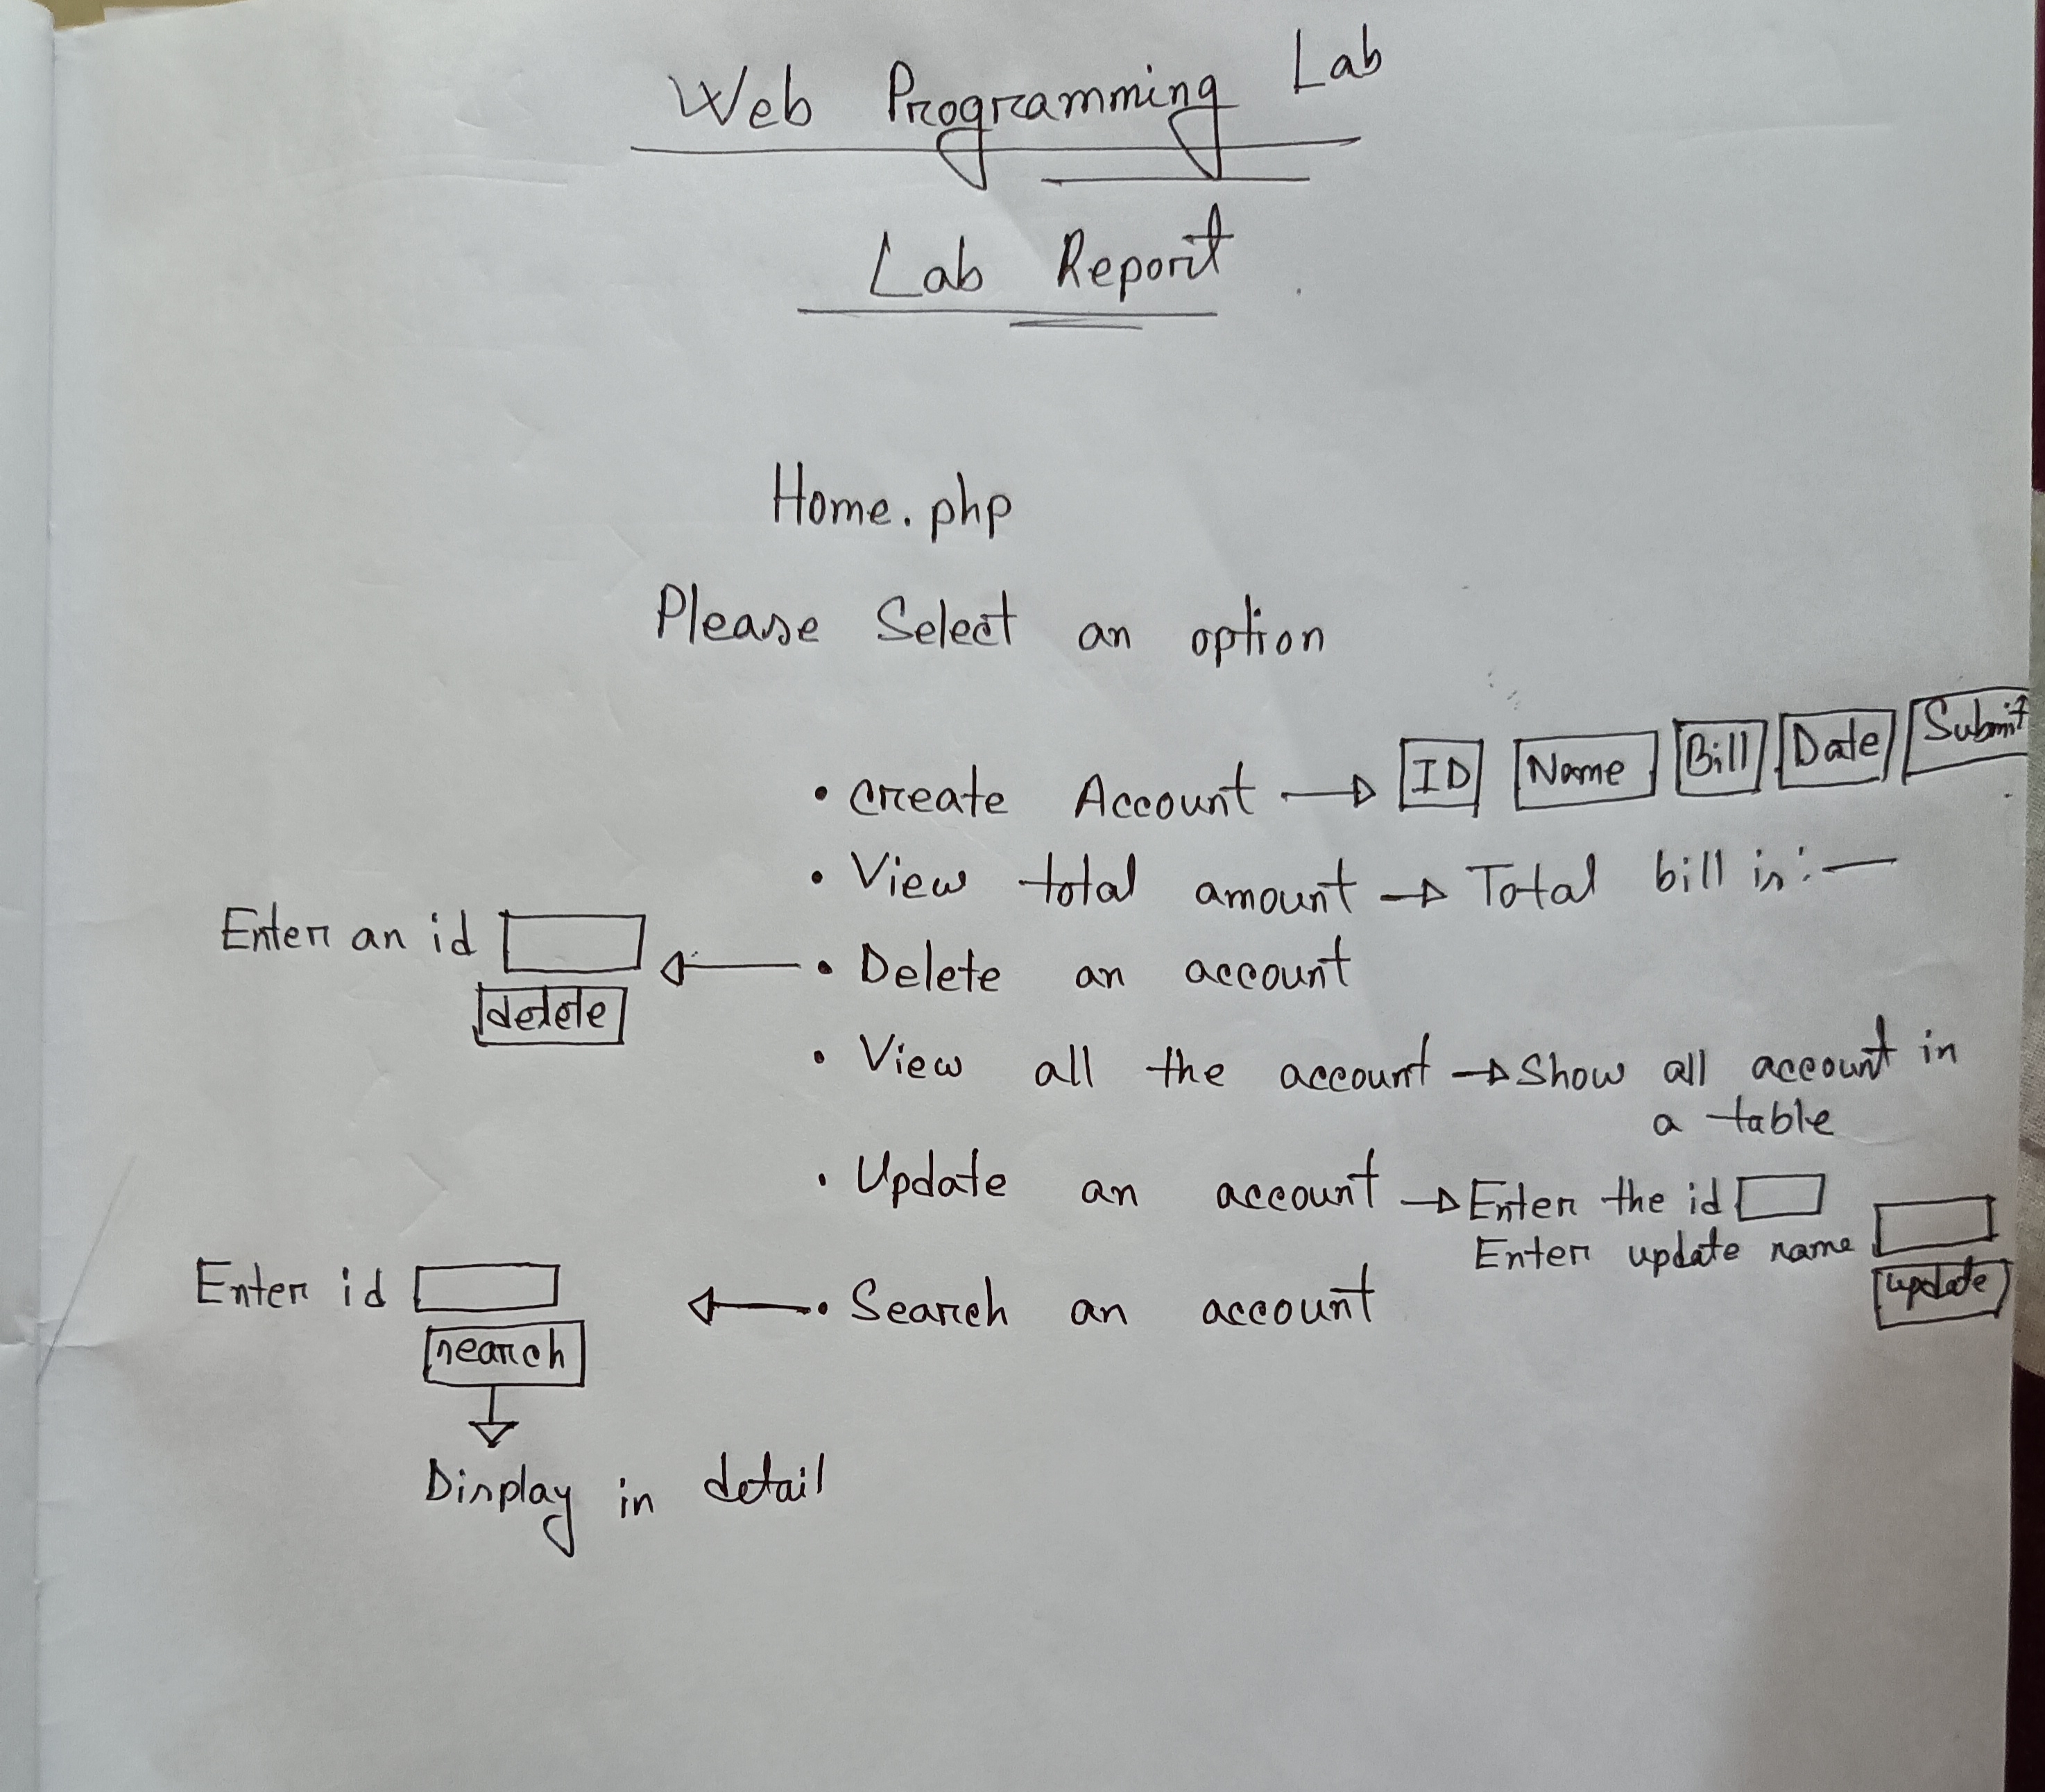 Web Programming Lab
Lab Report
Home.php
Please Select an option
• Create Account → ID Name Bill Date Submit
• View total amount → Total bill is: —
Enter an id ← • Delete an account
delete
• View all the account → Show all account in
a table
• Update an account → Enter the id
Enter update name
update
Enter id ← • Search an account
search
Display in detail